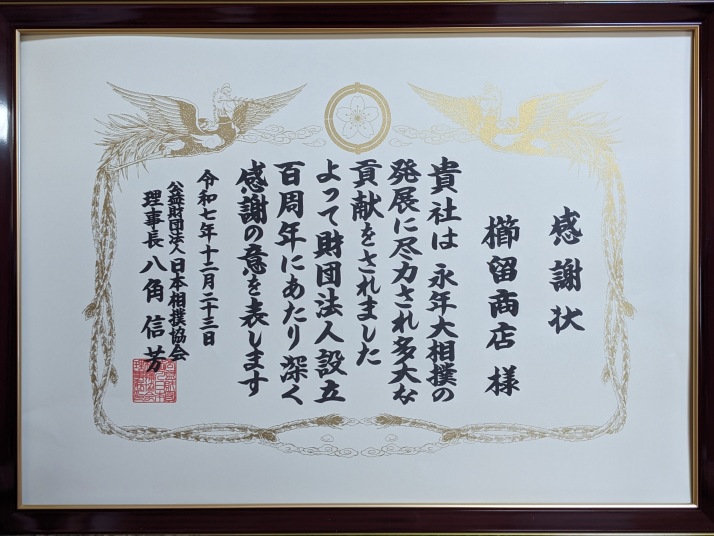 感謝状
櫛留商店 様
貴社は 永年大相撲の
発展に尽力され多大な
貢献をされました
よって財団法人設立
百周年にあたり 深く
感謝の意を表します
令和七年十二月二十三日
公益財団法人日本相撲協会
理事長 八角 信芳